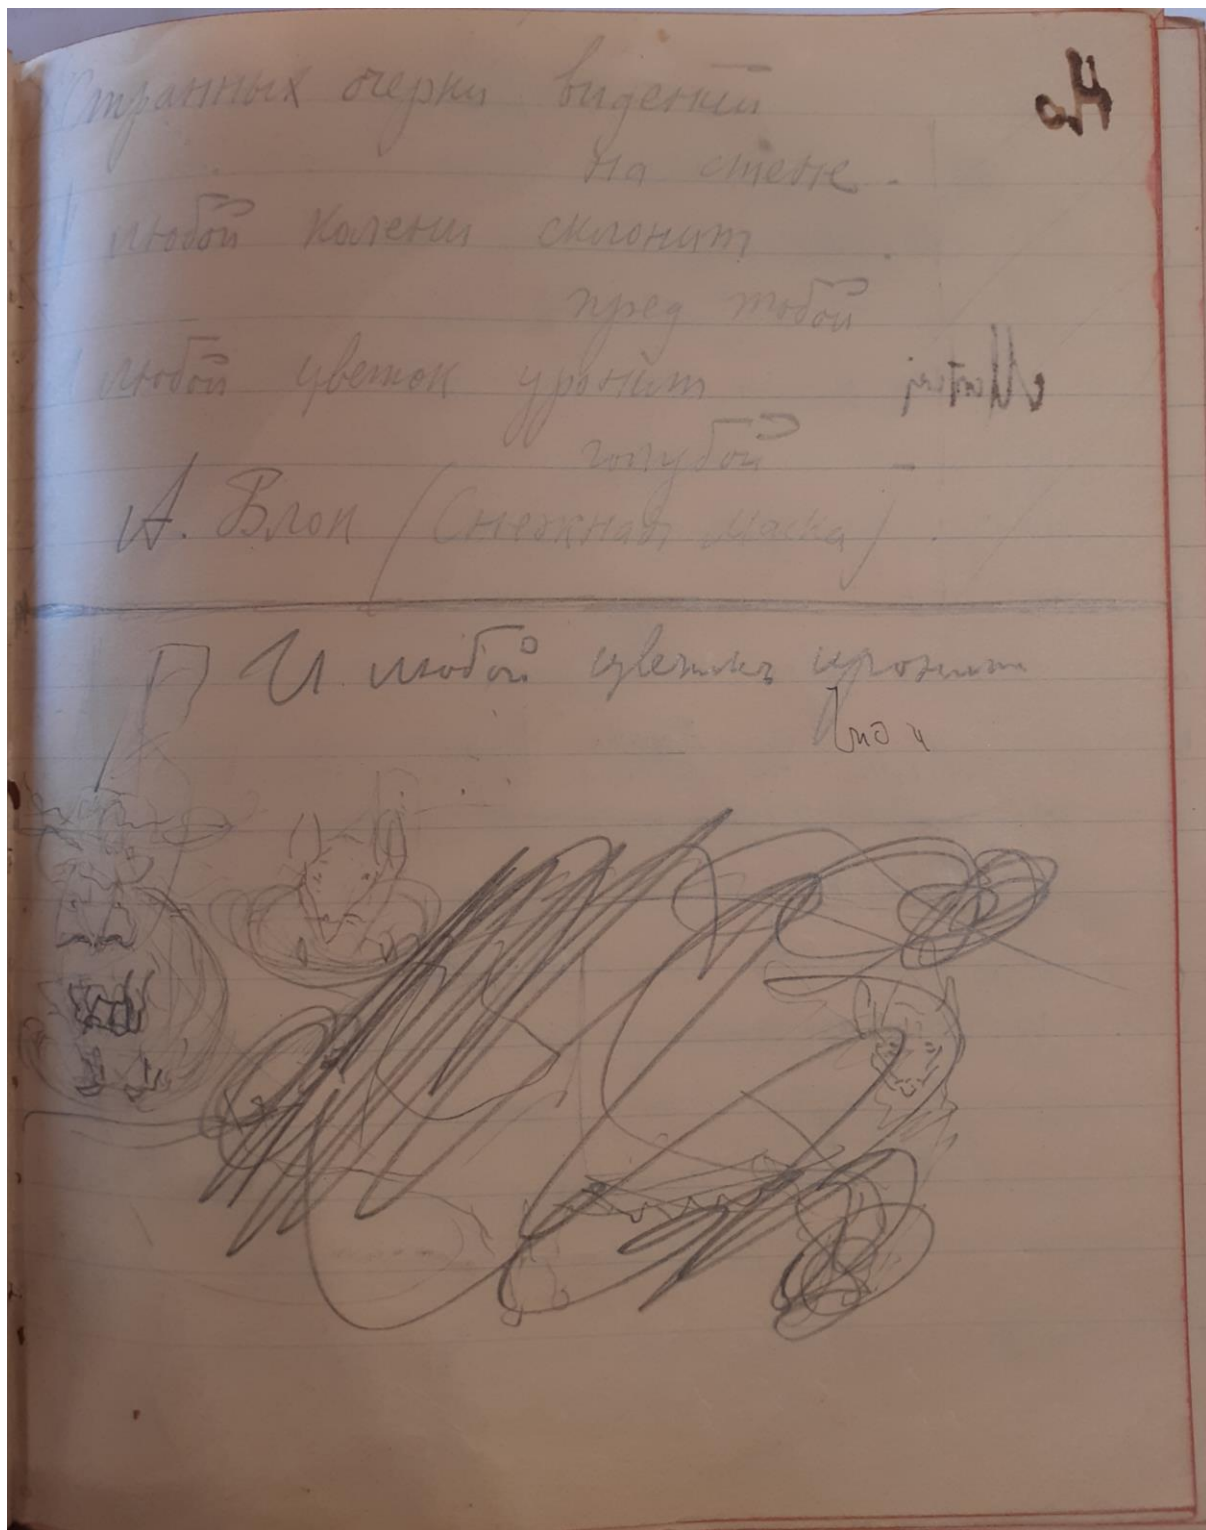 Странных очерки видений
на стене.
И любой колени склонит
пред тобой
И любой цветок уронит
голубой
А. Блок (Снежная Маска).
И любой цветок уронит